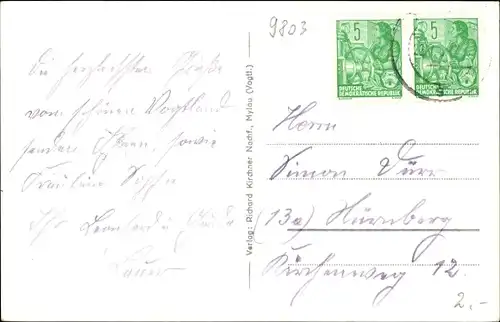 9803
5
DEUTSCHE
DEMOKRATISCHE REPUBLIK
5
DEUTSCHE
DEMOKRATISCHE REPUBLIK
Die herzlichsten Grüße
vom schönen Vogtland
sendet Ihnen, sowie
Fräulein
Ihr Leonhard
Verlag: Richard Kirchner Nachf., Mylau (Vogtl.)
Herrn
Simon Dürr
(13a) Nürnberg
Kirchenweg 12
2.-